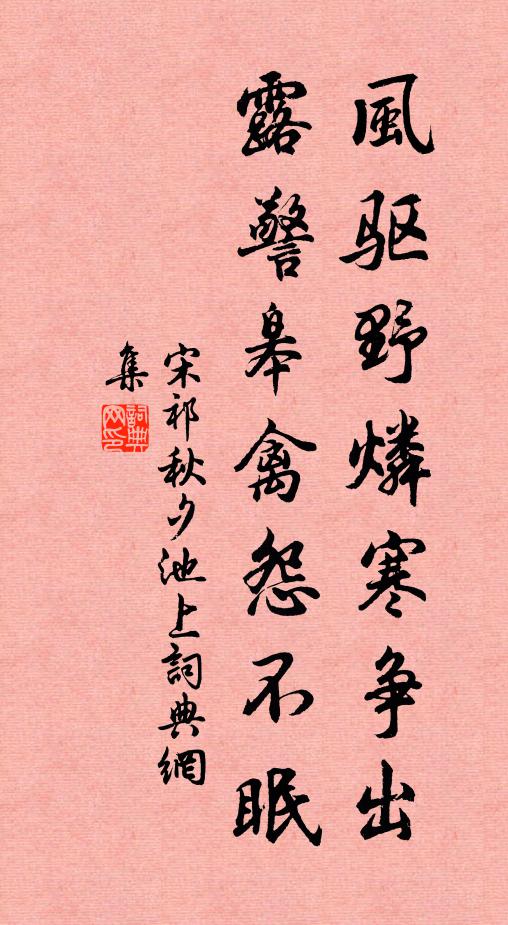 風驱野燐寒争出
露警皋禽怨不眠
宋祁秋夕池上詞典網
集
詞典
网印